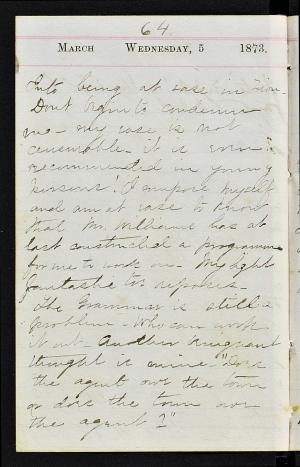 64.
March Wednesday, 5 1873.
Into being at ease in
Dont begin to condemn
me - my case is not
censurable - it is even
recommended in young
persons! I compose myself
and am at ease to know
that Mr. Williams has at
last constructed a programme
for me to work on - My light
fantastic toe reposes -
The Grammar is still a
problem - Who can work
it out - Another
thought is mine "Does
the agent owe the town
or does the town owe
the agent?"